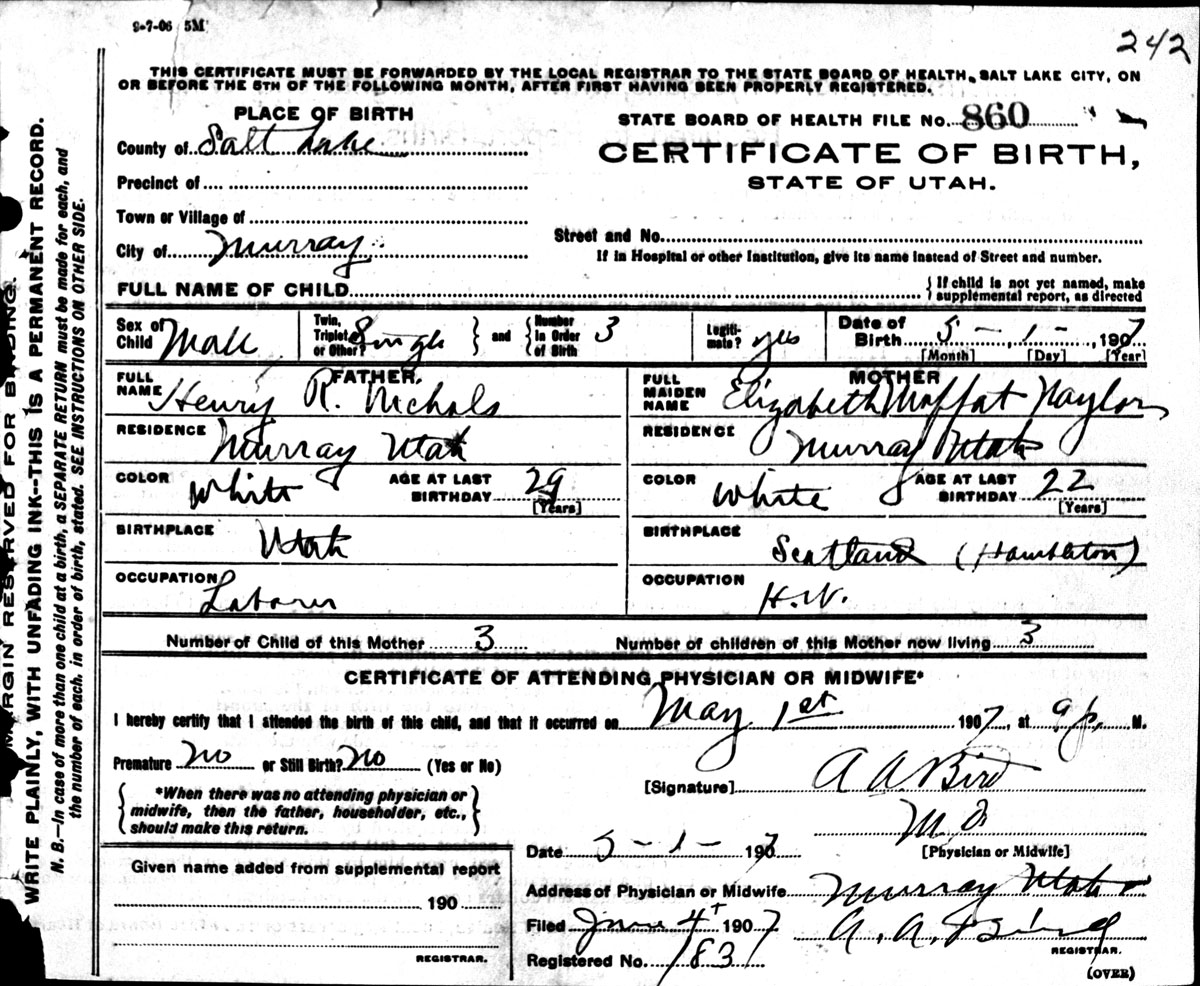 9-7-06 5M
242
THIS CERTIFICATE MUST BE FORWARDED BY THE LOCAL REGISTRAR TO THE STATE BOARD OF HEALTH, SALT LAKE CITY, ON
OR BEFORE THE 5TH OF THE FOLLOWING MONTH, AFTER FIRST HAVING BEEN PROPERLY REGISTERED.
PLACE OF BIRTH
County of Salt Lake
Precinct of
Town or Village of
City of Murray
STATE BOARD OF HEALTH FILE No. 860
CERTIFICATE OF BIRTH,
STATE OF UTAH.
Street and No.
If in Hospital or other Institution, give its name instead of Street and number.
FULL NAME OF CHILD
{ If child is not yet named, make
supplemental report, as directed
Sex of Child Male
Twin, Triplet, or Other? Single } and { Number in Order of Birth 3
Legiti-mate? yes
Date of Birth 5 - 1 - , 1907
[Month] [Day] [Year]
FATHER,
FULL NAME Henry R. Nichols
RESIDENCE Murray Utah
COLOR White AGE AT LAST BIRTHDAY 29
[Years]
BIRTHPLACE Utah
OCCUPATION Laborer
MOTHER
FULL MAIDEN NAME Elizabeth Moffat Naylor
RESIDENCE Murray Utah
COLOR White AGE AT LAST BIRTHDAY 22
[Years]
BIRTHPLACE Scotland (Hambleton)
OCCUPATION H.W.
Number of Child of this Mother 3 Number of children of this Mother now living 3
CERTIFICATE OF ATTENDING PHYSICIAN OR MIDWIFE*
I hereby certify that I attended the birth of this child, and that it occurred on May 1st 1907, at 9 p. M.
Premature No or Still Birth? No (Yes or No)
{ *When there was no attending physician or
midwife, then the father, householder, etc.,
should make this return. }
[Signature] A A Bird
M D
[Physician or Midwife]
Date 5 - 1 - 1907
Address of Physician or Midwife Murray Utah
Filed June 4t 1907 A. A. Bird
REGISTRAR.
Registered No. 183
(OVER)
Given name added from supplemental report
190
REGISTRAR.
MARGIN RESERVED FOR BINDING.
WRITE PLAINLY, WITH UNFADING INK--THIS IS A PERMANENT RECORD.
N. B.—In case of more than one child at a birth, a SEPARATE RETURN must be made for each, and
the number of each, in order of birth, stated. SEE INSTRUCTIONS ON OTHER SIDE.